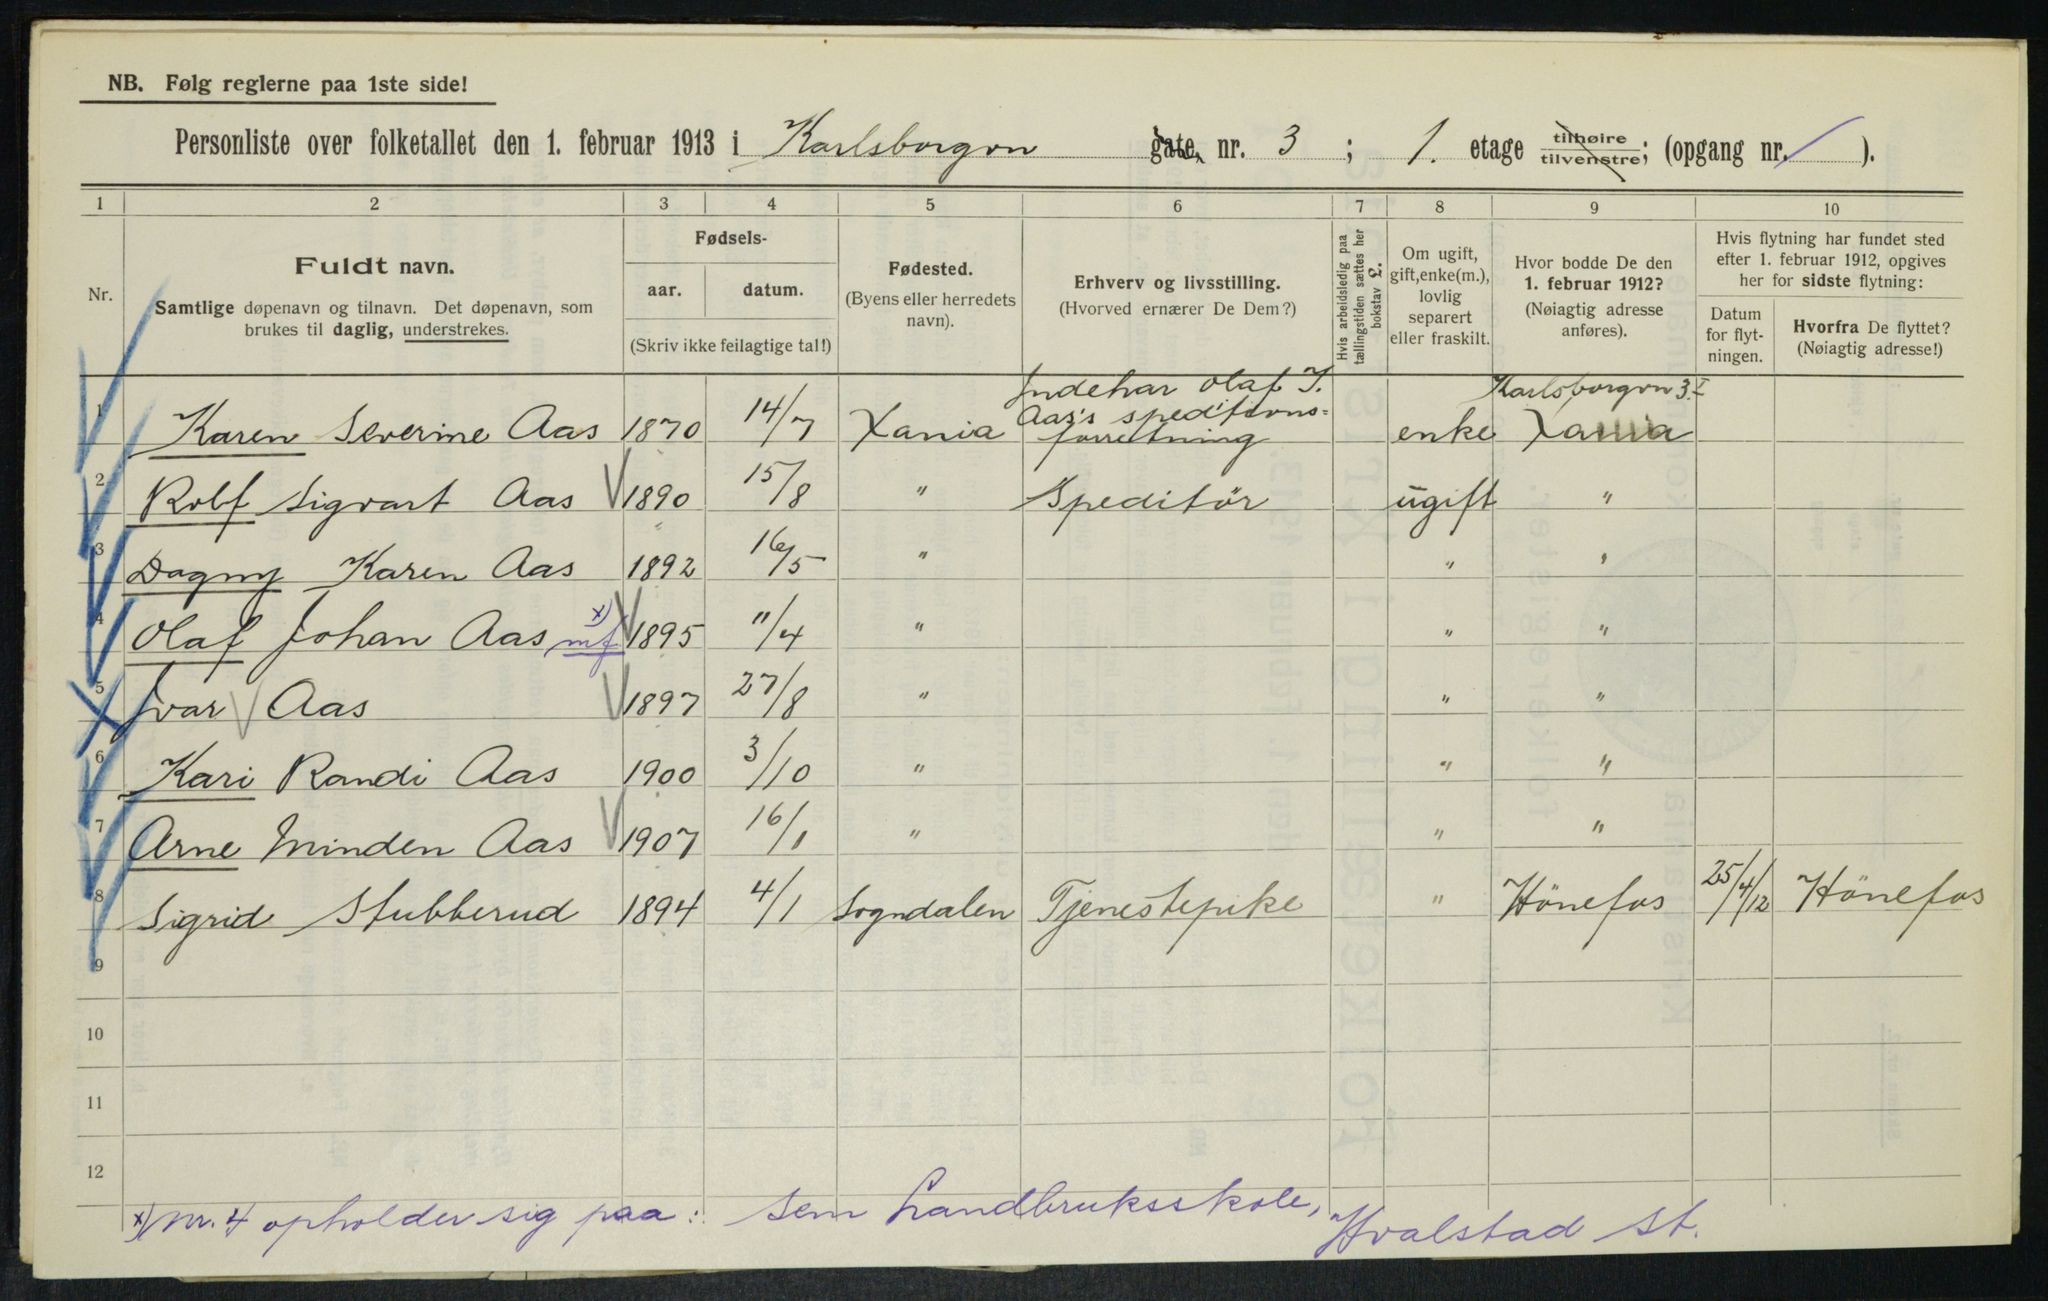 NB. Følg reglerne paa 1ste side!
Personliste over folketallet den 1. februar 1913 i Karlsborgvn gate, nr. 3 ; 1. etage tilhøire tilvenstre; (opgang nr. / ).
1 2 3 4 5 6 7 8 9 10
Nr.
Fuldt navn.
Samtlige døpenavn og tilnavn. Det døpenavn, som
brukes til daglig, understrekes.
Fødsels-
aar. datum.
(Skriv ikke feilagtige tal!)
Fødested.
(Byens eller herredets
navn).
Erhverv og livsstilling.
(Hvorved ernærer De Dem?)
Hvis arbeidsledig paa
tællingstiden sættes her
bokstav L.
Om ugift,
gift, enke(m.),
lovlig
separert
eller fraskilt.
Hvor bodde De den
1. februar 1912?
(Nøiagtig adresse
anføres).
Hvis flytning har fundet sted
efter 1. februar 1912, opgives
her for sidste flytning:
Datum
for flyt-
ningen.
Hvorfra De flyttet?
(Nøiagtig adresse!)
Indehar Olaf I. Karlsborgvn 3 I
Aas's speditions=
1 Karen Severine Aas 1870 14/7 Xania forretning enke Xania
2 Rolf Sigvart Aas 1890 15/8 " Speditör ugift "
3 Dagny Karen Aas 1892 16/5 " " "
4 Olaf Johan Aas x) mf 1895 11/4 " " "
5 Ivar Aas 1897 27/8 " " "
6 Kari Randi Aas 1900 3/10 " " "
7 Arne Minden Aas 1907 16/1 " " "
8 Sigrid Stubberud 1894 4/1 Sogndalen Tjenestepike " Hönefos 25/4/12 Hönefos
9
10
11
12
x) nr. 4 opholder sig paa: Sem Landbruksskole,
Hvalstad St.